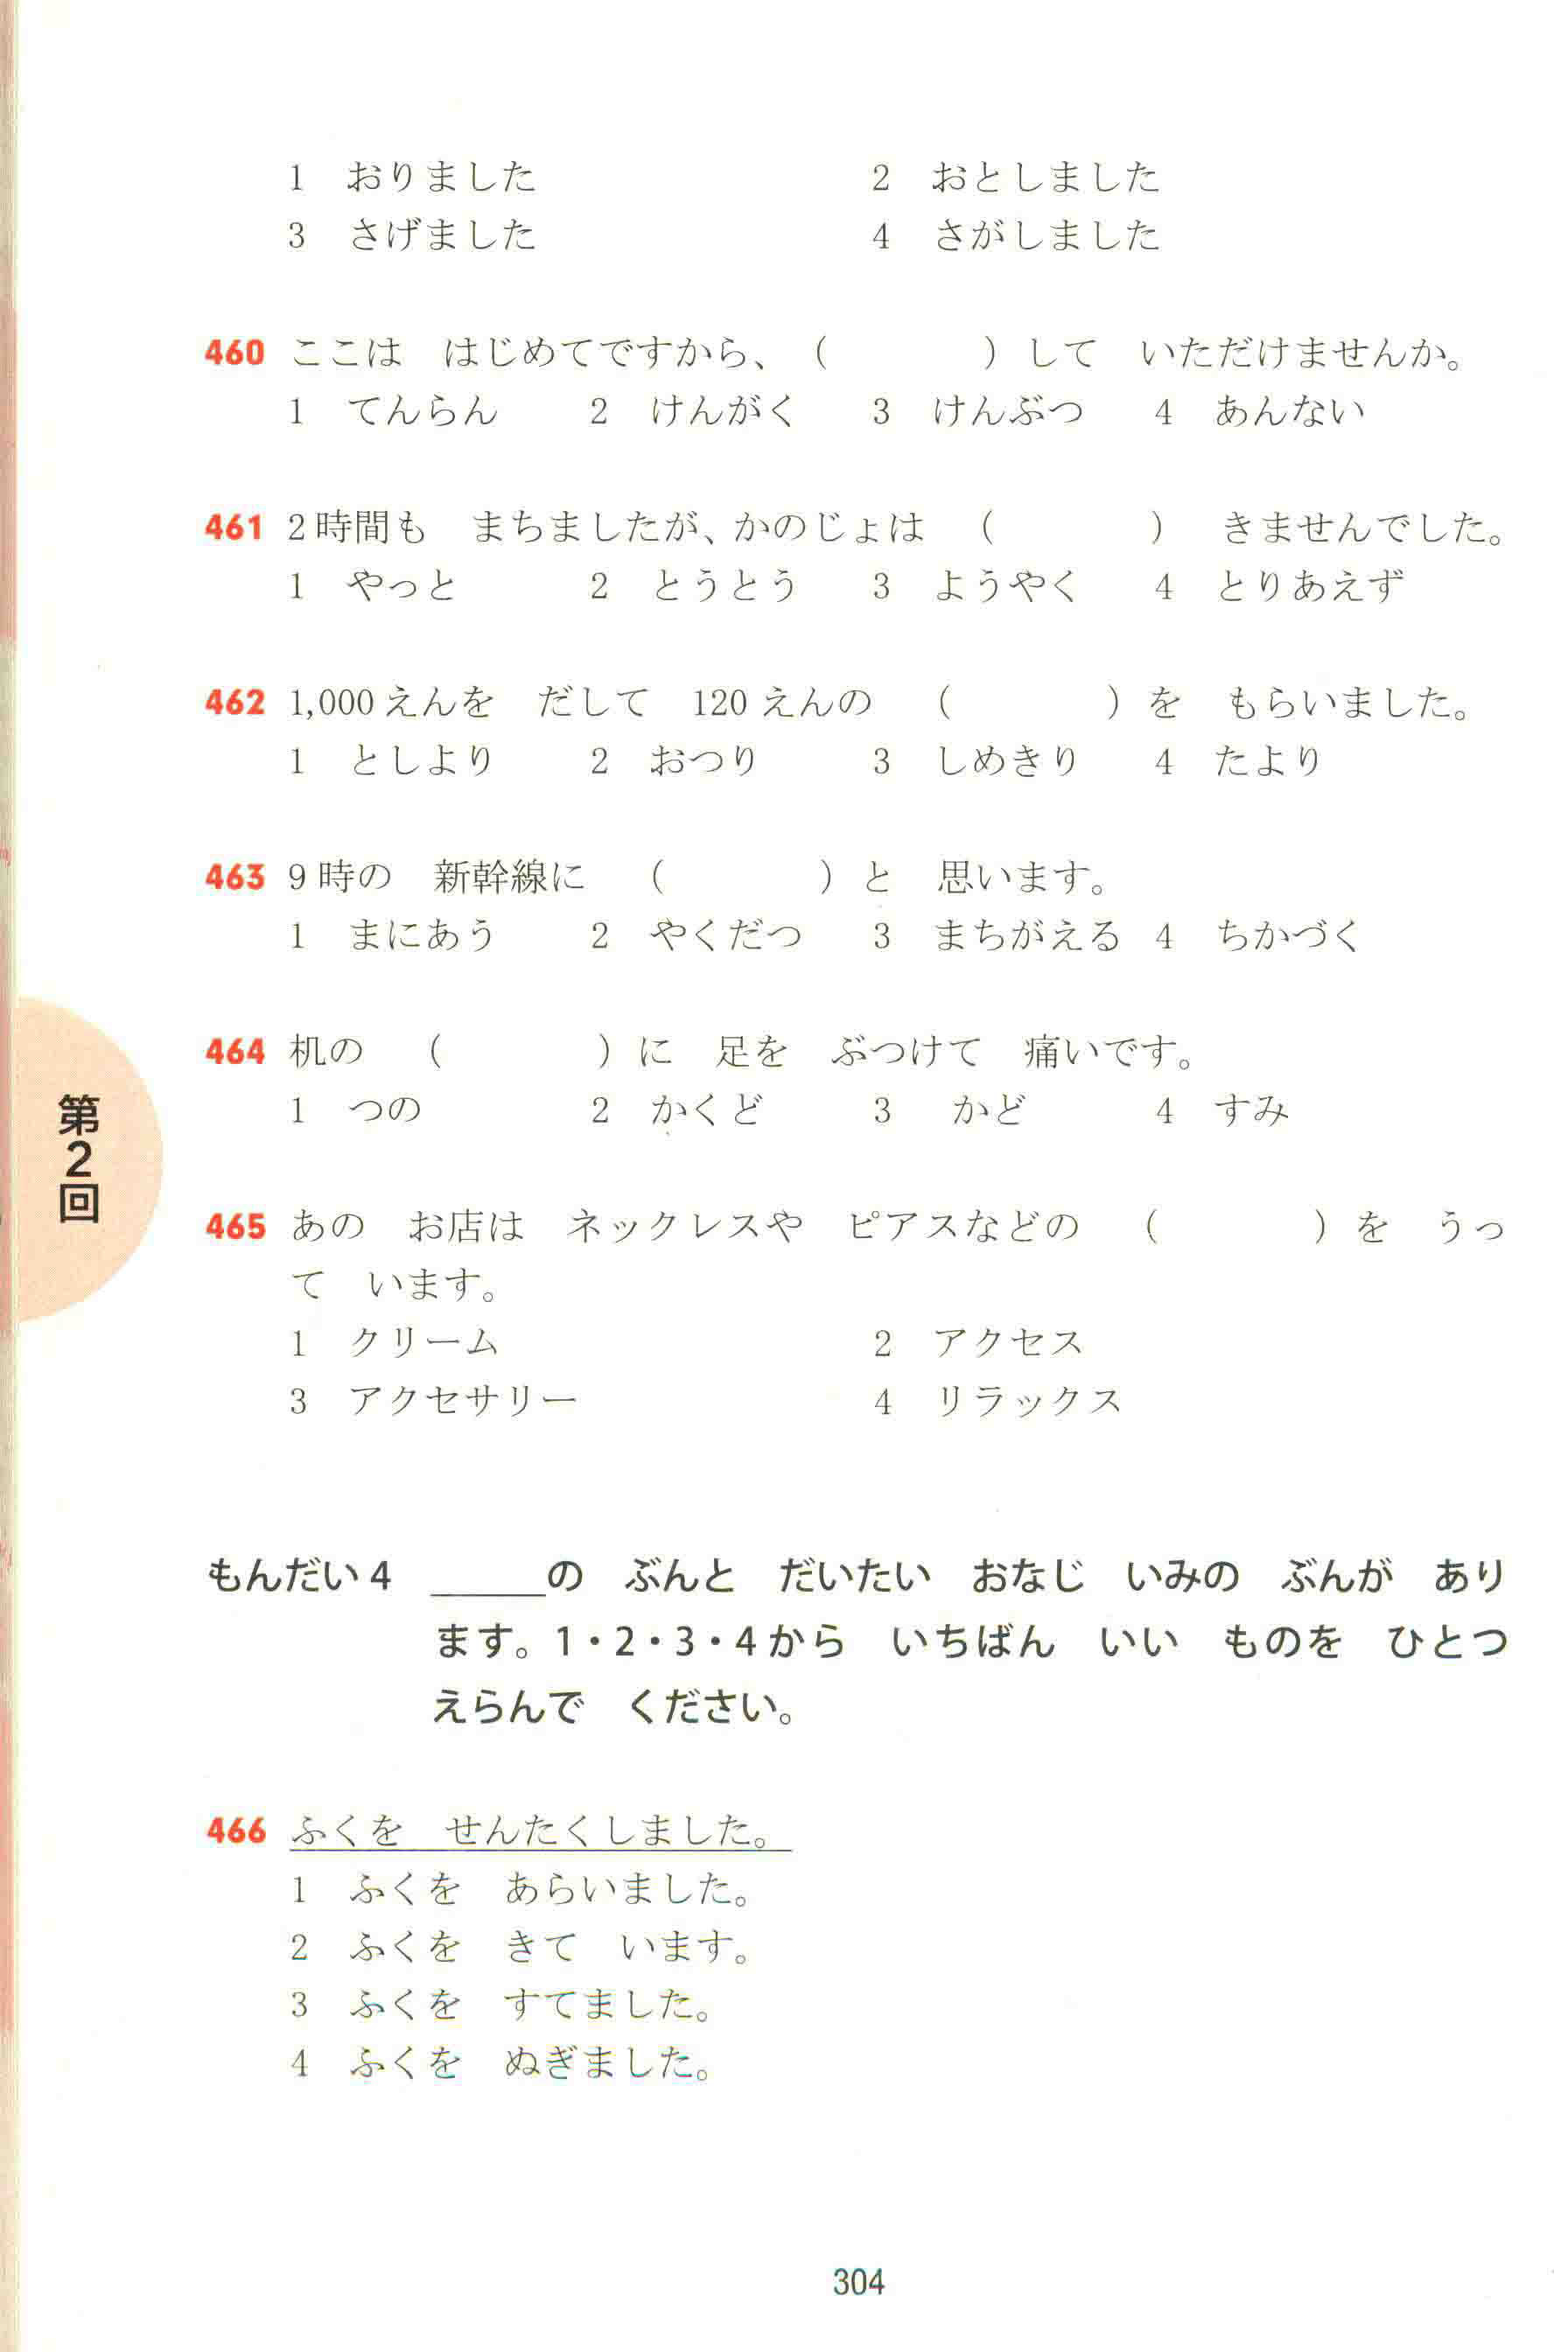 1　おりました　2　おとしました
3　さげました　4　さがしました
460 ここは　はじめてですから、（　　　）して　いただけませんか。
1　てんらん　2　けんがく　3　けんぶつ　4　あんない
461 2時間も　まちましたが、かのじょは　（　　　）　きませんでした。
1　やっと　2　とうとう　3　ようやく　4　とりあえず
462 1,000えんを　だして　120えんの　（　　　）を　もらいました。
1　としより　2　おつり　3　しめきり　4　たより
463 9時の　新幹線に　（　　　）と　思います。
1　まにあう　2　やくだつ　3　まちがえる　4　ちかづく
464 机の　（　　　）に　足を　ぶつけて　痛いです。
1　つの　2　かくど　3　かど　4　すみ
465 あの　お店は　ネックレスや　ピアスなどの　（　　　）を　うっ
て　います。
1　クリーム　2　アクセス
3　アクセサリー　4　リラックス
第2回
もんだい4　＿＿＿の　ぶんと　だいたい　おなじ　いみの　ぶんが　あり
ます。1・2・3・4から　いちばん　いい　ものを　ひとつ
えらんで　ください。
466 ふくを　せんたくしました。
1　ふくを　あらいました。
2　ふくを　きて　います。
3　ふくを　すてました。
4　ふくを　ぬぎました。
304